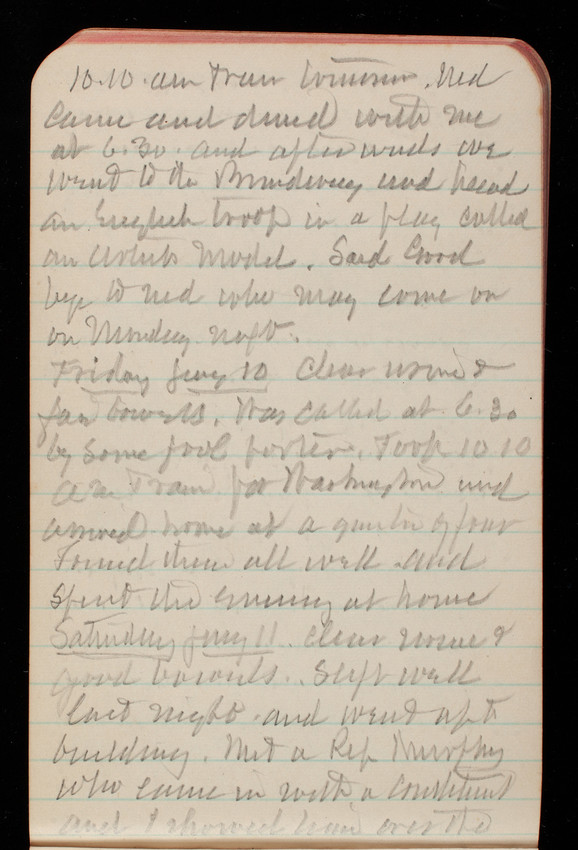 10.10. am Train tomorrow. Ned
came and dined with me
at 6.30. and afterwards we
went to the Broadway and heard
an English troop in a play called
an Artists Model. Said Good
bye to Ned who may come on
on Monday next.
Friday Jany 10 Clear &
fair bowels. Was called at 6.30
by some fool porter. Took 10 10
am Train for Washington and
arrived home at a quarter of four
Found them all well and
spent the evening at home
Saturday Jany 11. Clear &
good bowels. Slept well
last night and went up to
building. Met a Rep Murphy
who came in with a constituent
and I showed him over the